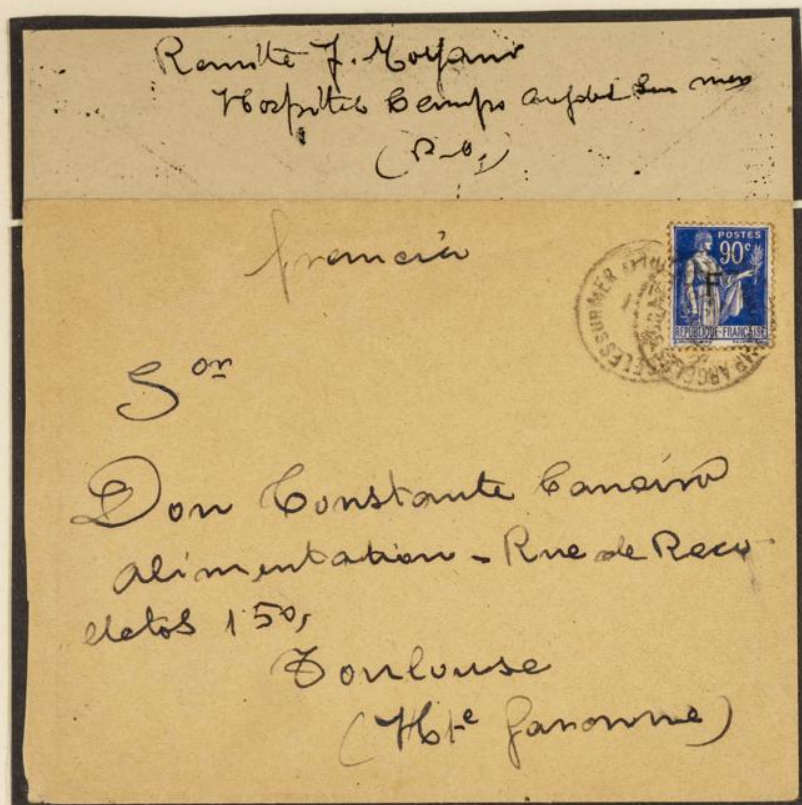 Remitte J. Moyano
Hospital Campo argeles Sur mer
(P-O)
francia
POSTES
90c
F
REPUBLIQUE-FRANÇAISE
ELES SUR MER
ARGELES
Sor
Don Constante Caneiro
alimentation - Rue de Reco
eletos 150,
Toulouse
(Hte Garonne)